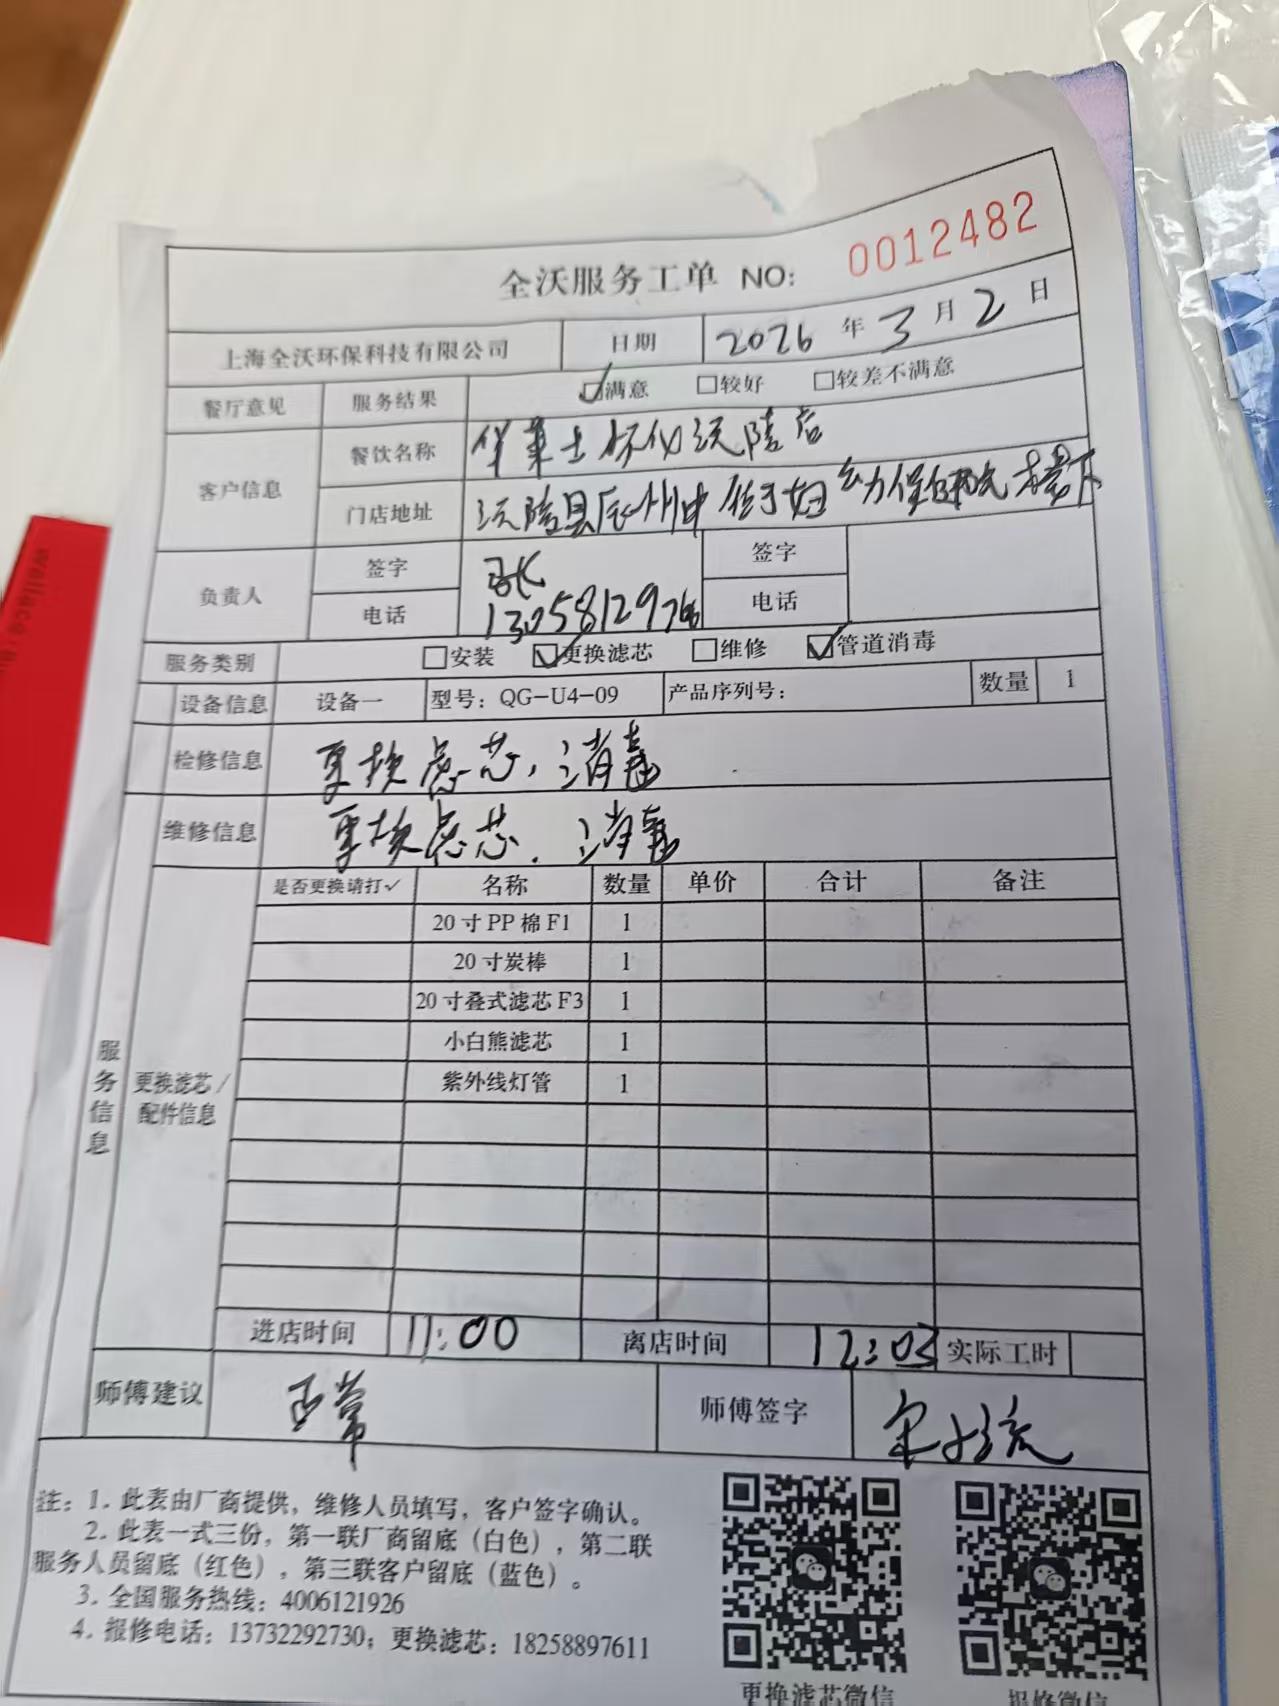 全沃服务工单 NO: 0012482
上海全沃环保科技有限公司 日期 2026 年 3 月 2 日
餐厅意见 服务结果 ☑满意 □较好 □较差不满意
客户信息 餐饮名称 华莱士怀化沅陵店
门店地址 沅陵县辰州中街于妇幼保健院楼下
负责人 签字 张 签字
电话 1305812976 电话
服务类别 □安装 ☑更换滤芯 □维修 ☑管道消毒
设备信息 设备一 型号: QG-U4-09 产品序列号: 数量 1
检修信息 更换滤芯，消毒
维修信息 更换滤芯，消毒
服务信息
更换滤芯/
配件信息
是否更换请打✓ 名称 数量 单价 合计 备注
20寸PP棉F1 1
20寸炭棒 1
20寸叠式滤芯F3 1
小白熊滤芯 1
紫外线灯管 1
进店时间 11:00 离店时间 12:03 实际工时
师傅建议 正常 师傅签字
注: 1. 此表由厂商提供，维修人员填写，客户签字确认。
2. 此表一式三份，第一联厂商留底（白色），第二联
服务人员留底（红色），第三联客户留底（蓝色）。
3. 全国服务热线: 4006121926
4. 报修电话: 13732292730; 更换滤芯: 18258897611
更换滤芯微信 报修微信
wallace